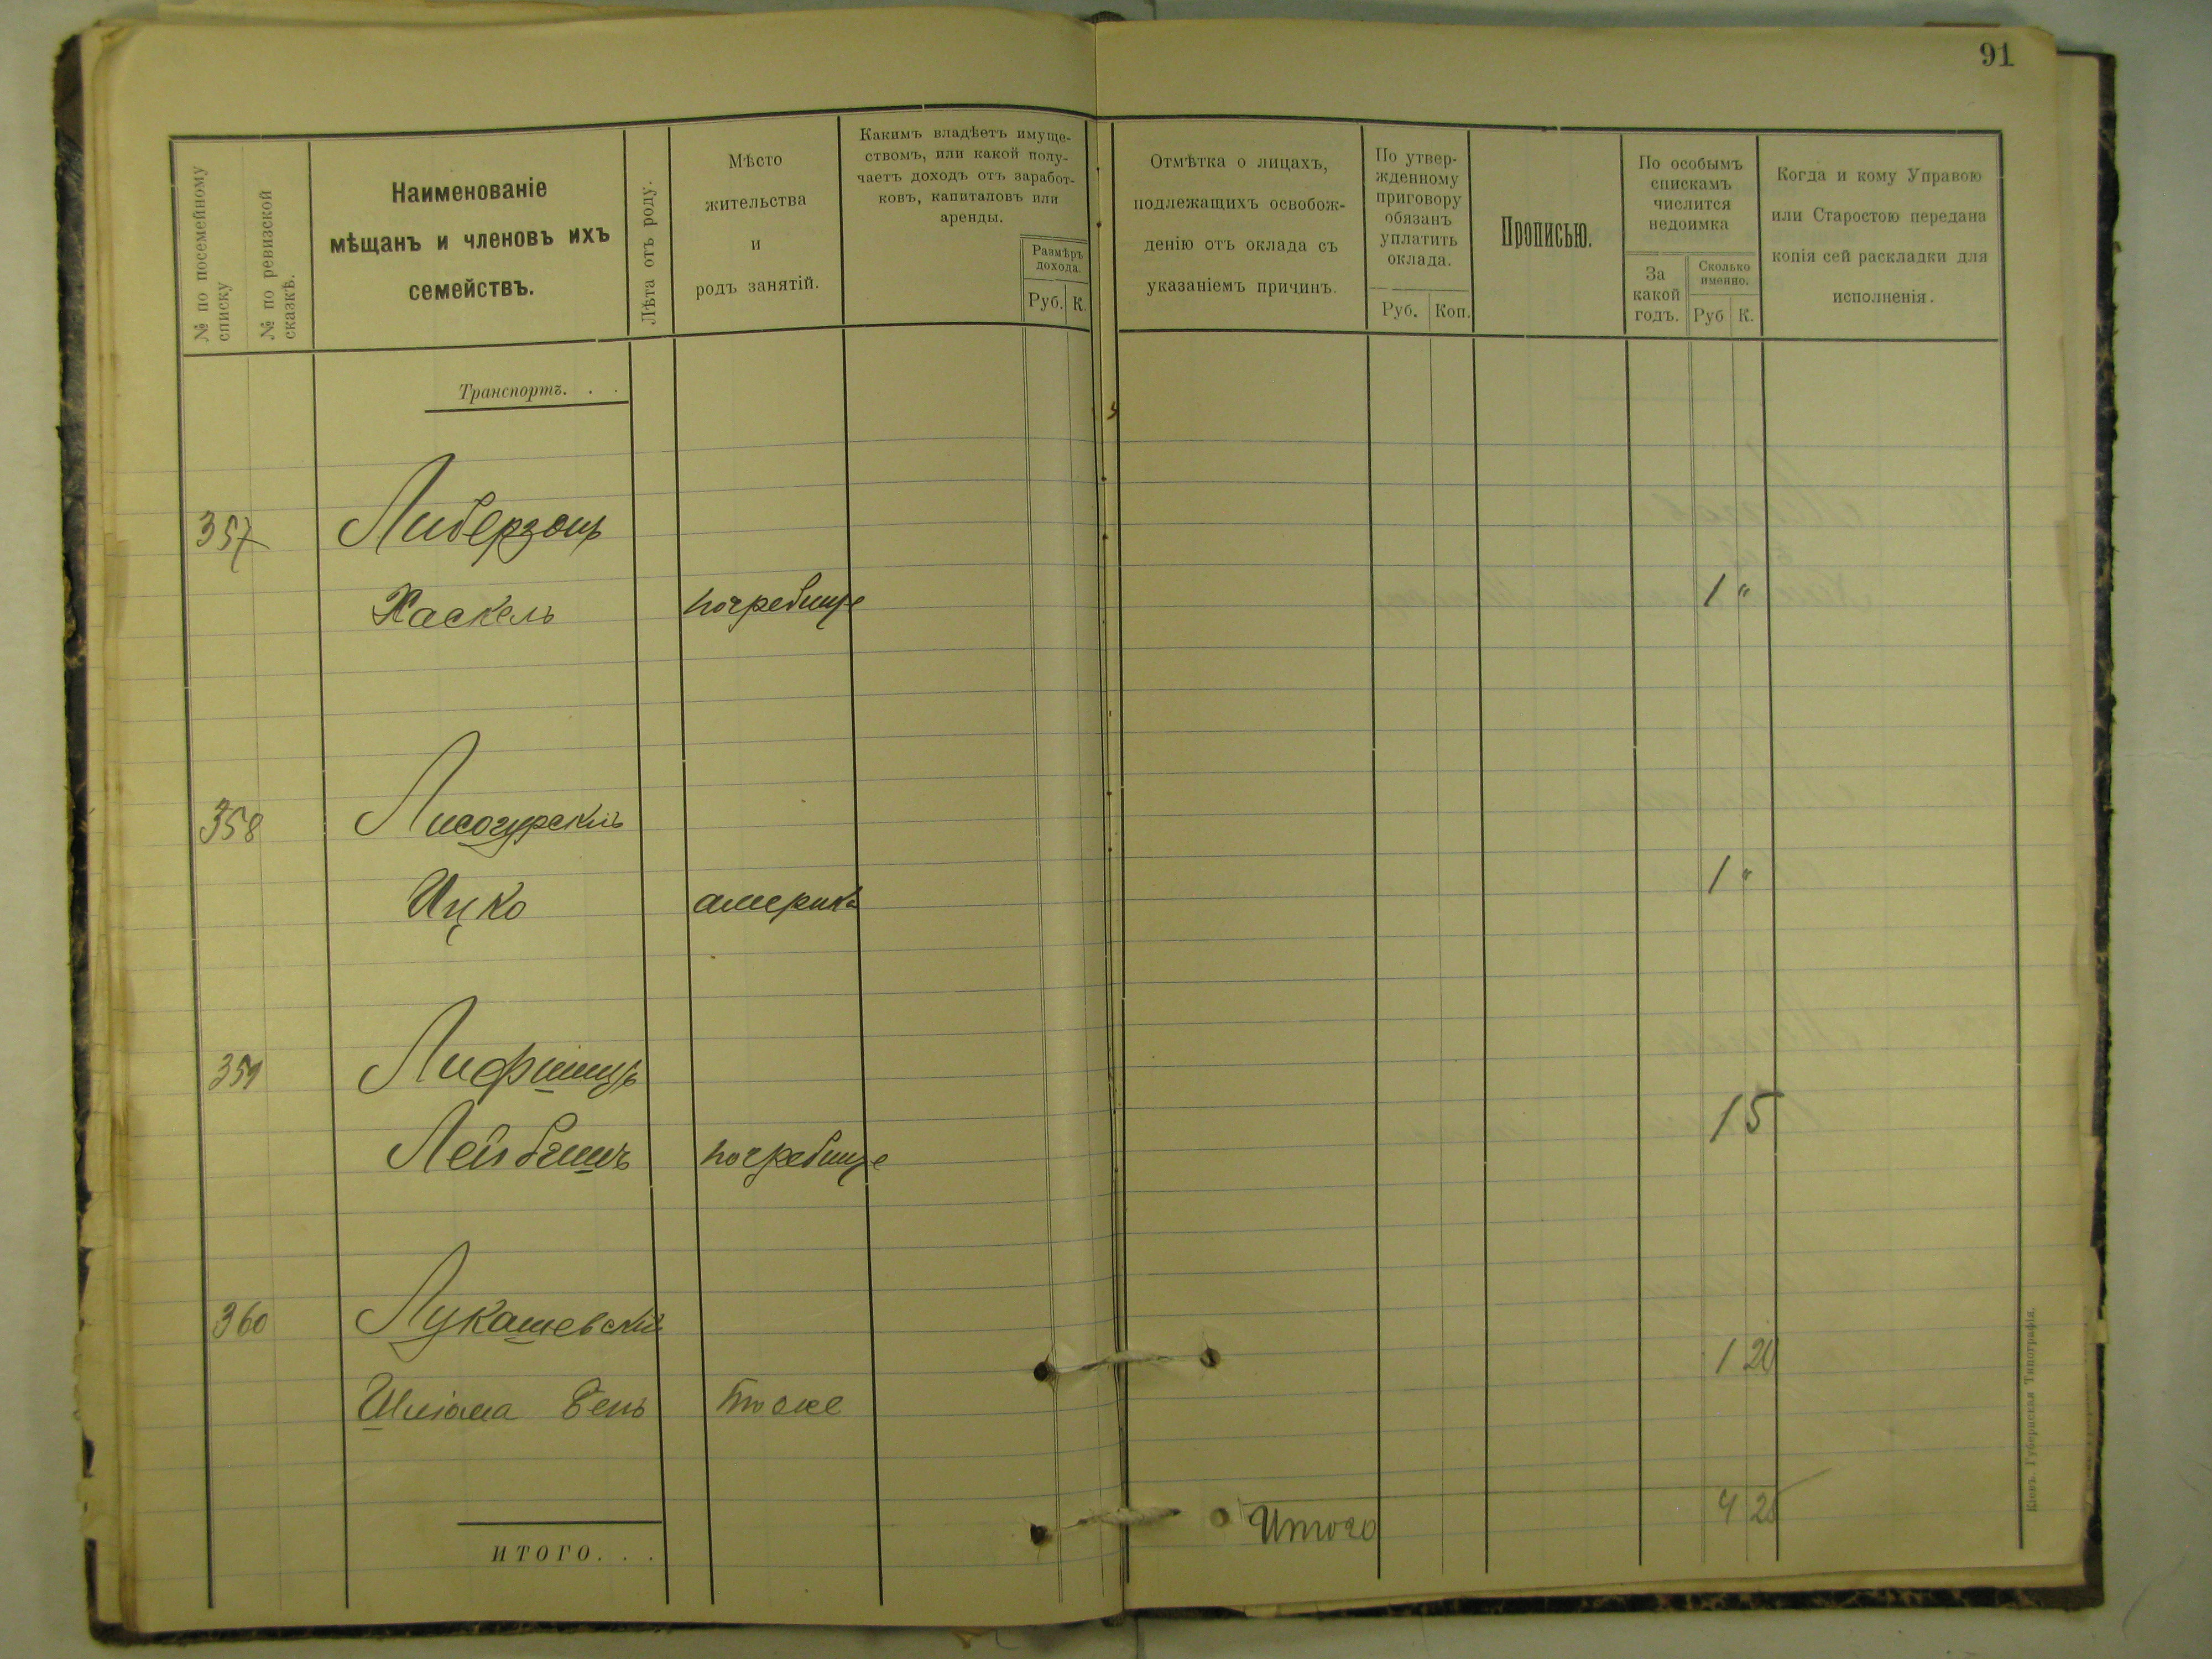 91
№ по посемейному списку
№ по ревизской сказкѣ.
Наименованіе
мѣщанъ и членовъ ихъ
семействъ.
Лѣта отъ роду.
Мѣсто
жительства
и
родъ занятій.
Какимъ владѣетъ имуще-
ствомъ, или какой полу-
чаетъ доходъ отъ заработ-
ковъ, капиталовъ или
аренды.
Размѣръ
дохода.
Руб. К.
Отмѣтка о лицахъ,
подлежащихъ освобож-
денію отъ оклада съ
указаніемъ причинъ.
По утвер-
жденному
приговору
обязанъ
уплатить
оклада.
Руб. Коп.
Прописью.
По особымъ
спискамъ
числится
недоимка
За
какой
годъ.
Сколько
именно.
Руб К.
Когда и кому Управою
или Старостою передана
копія сей раскладки для
исполненія.
Транспортъ. . .
357 Либерзонъ
Хаскель погребище 1 "
358 Лисогурскій
Ицко америка 1 "
359 Лифшицъ
Лейбишъ погребище 1 5
360 Лукашевскій
Шліома Бень тоже 1 20
Итого 4 25
ИТОГО. . .
Кіевъ. Губернская Типографія.